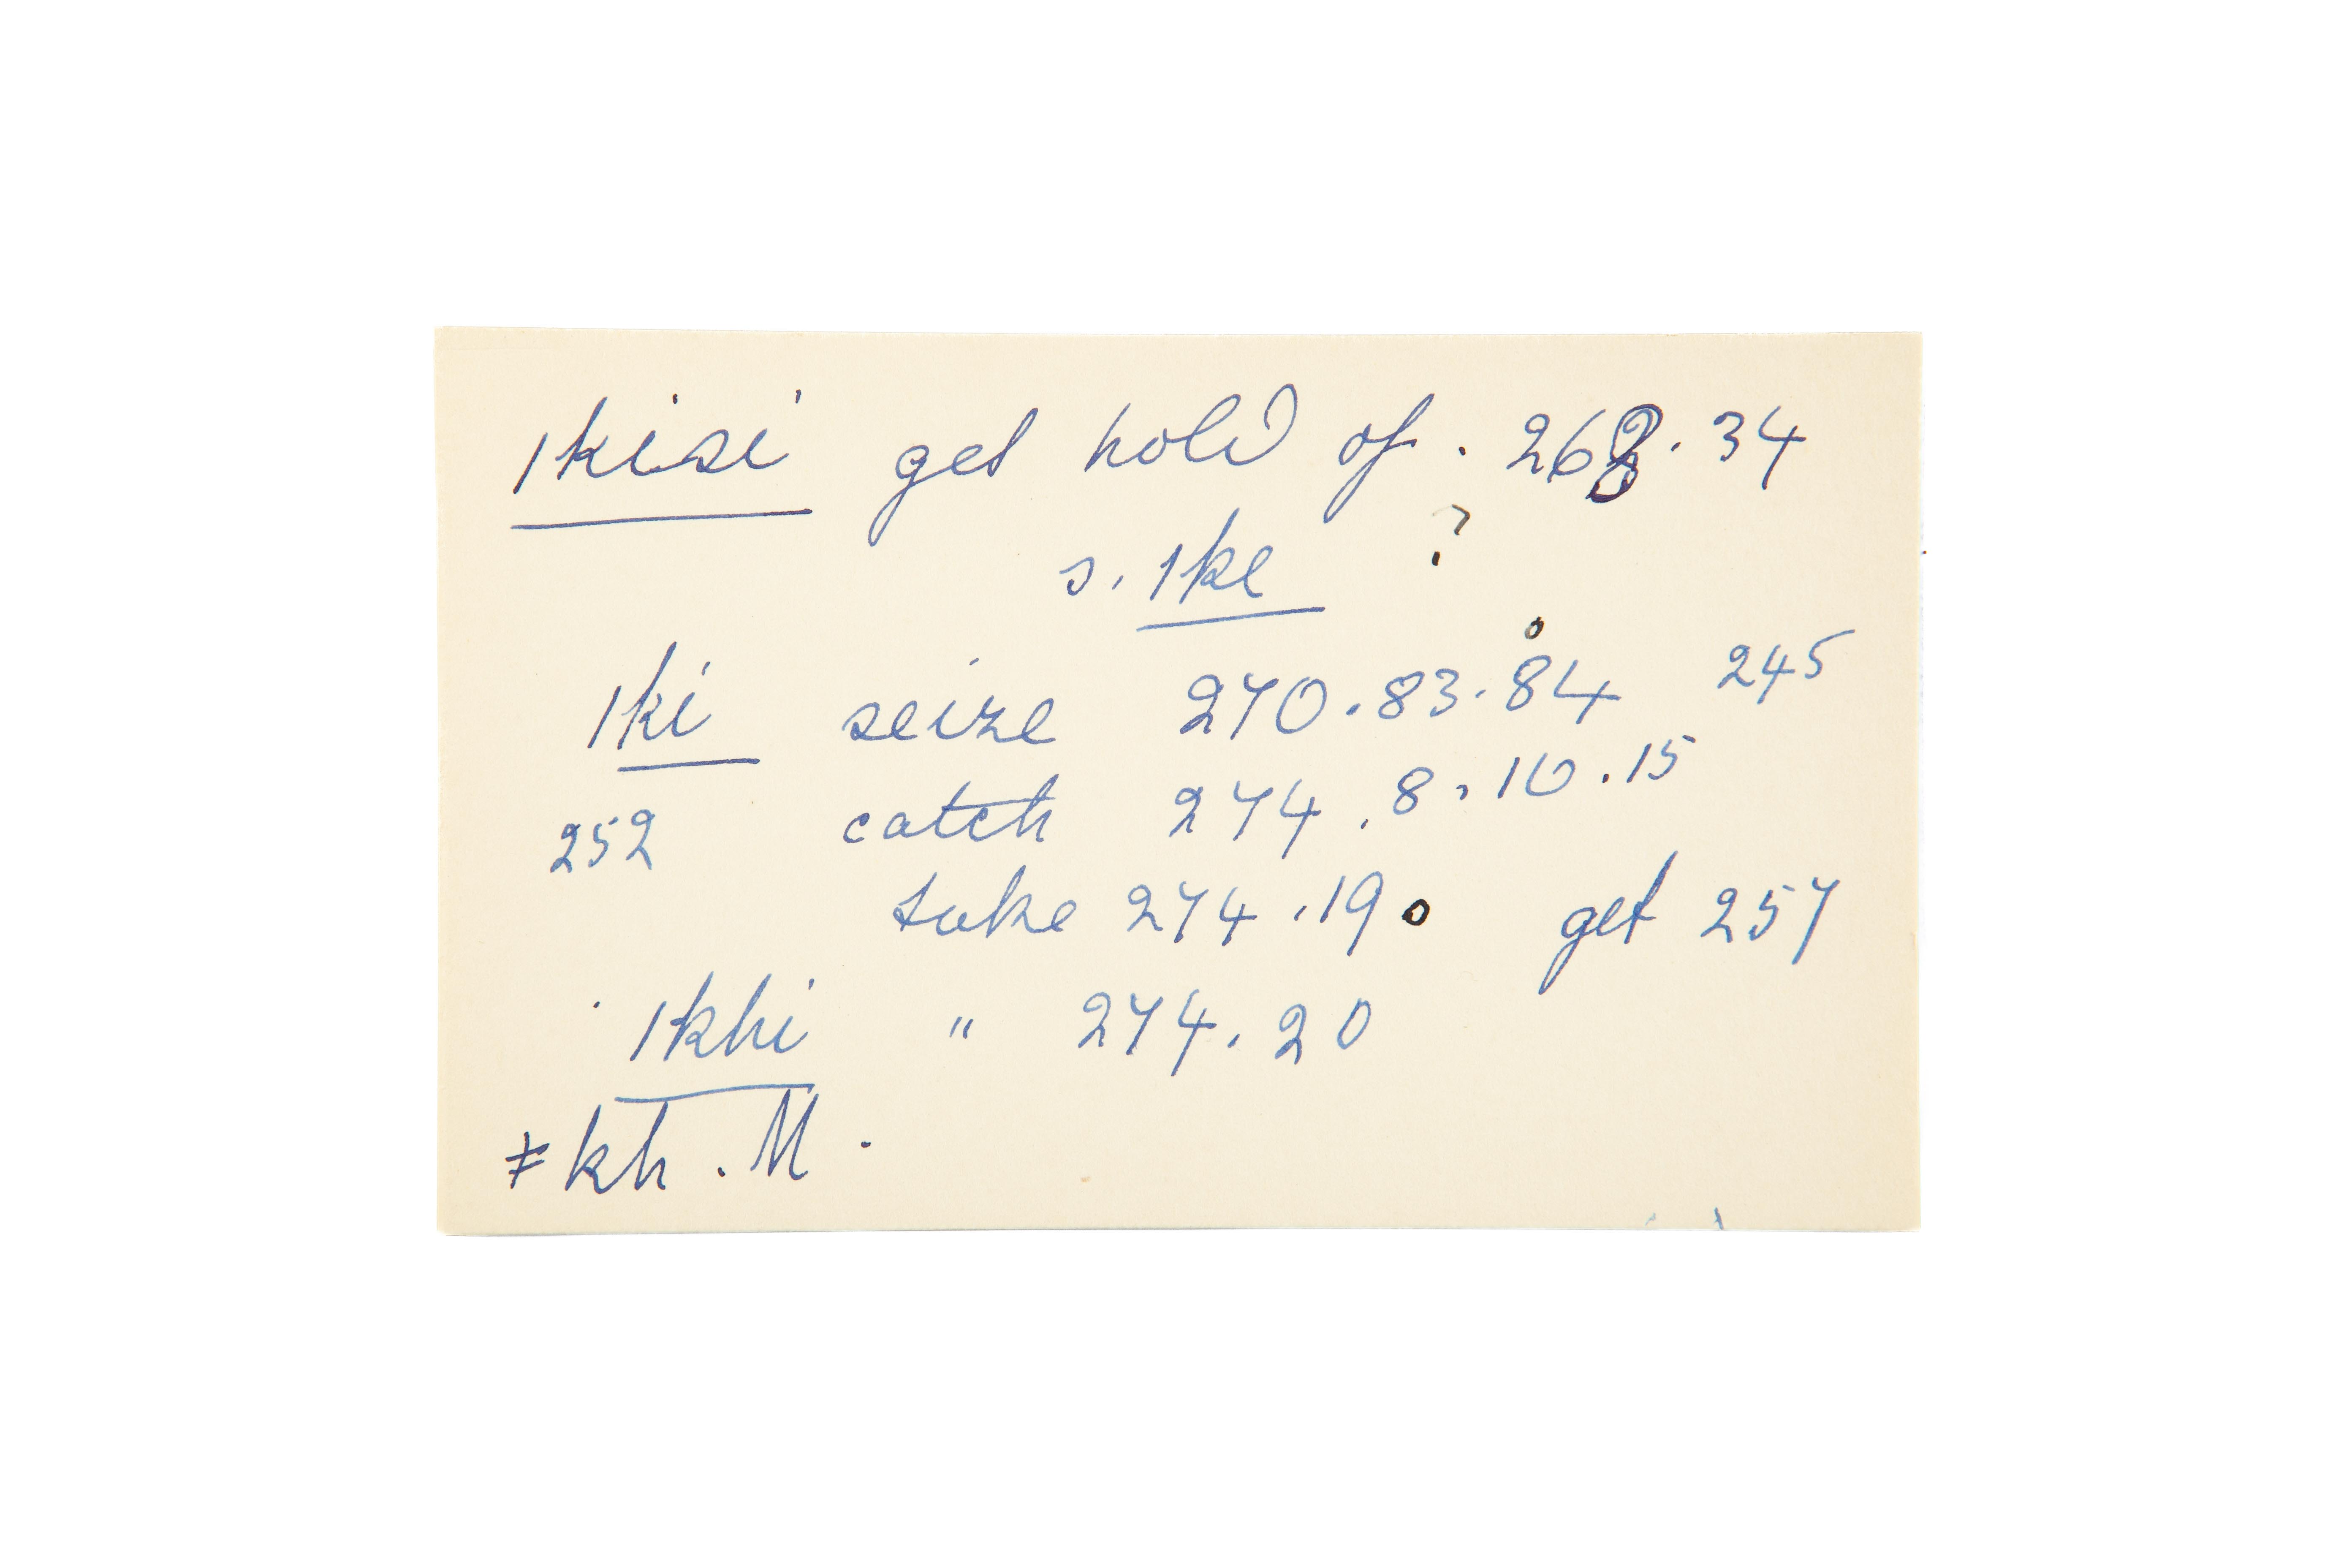 /kisi get hold of . 268 . 34
s. /ke ?
/ki seize 270 . 83 . 84 245
252 catch 274 . 8 , 10 . 15
take 274 . 19 . get 257
/khi " 274 . 20
≠kh . M .